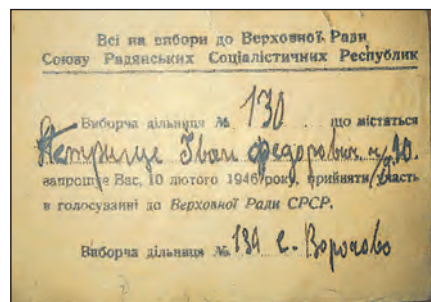 Всі на вибори до Верховної Ради
Союву Радянських Соціалістичних Республик
Виборча дільниця № 130 що міститься
Іван Федорович
запрошує Вас, 10 лютого 1946 року, прийняти участь
в голосуванні до Верховної Ради СРСР.
Виборча дільниця № с. Ворочово